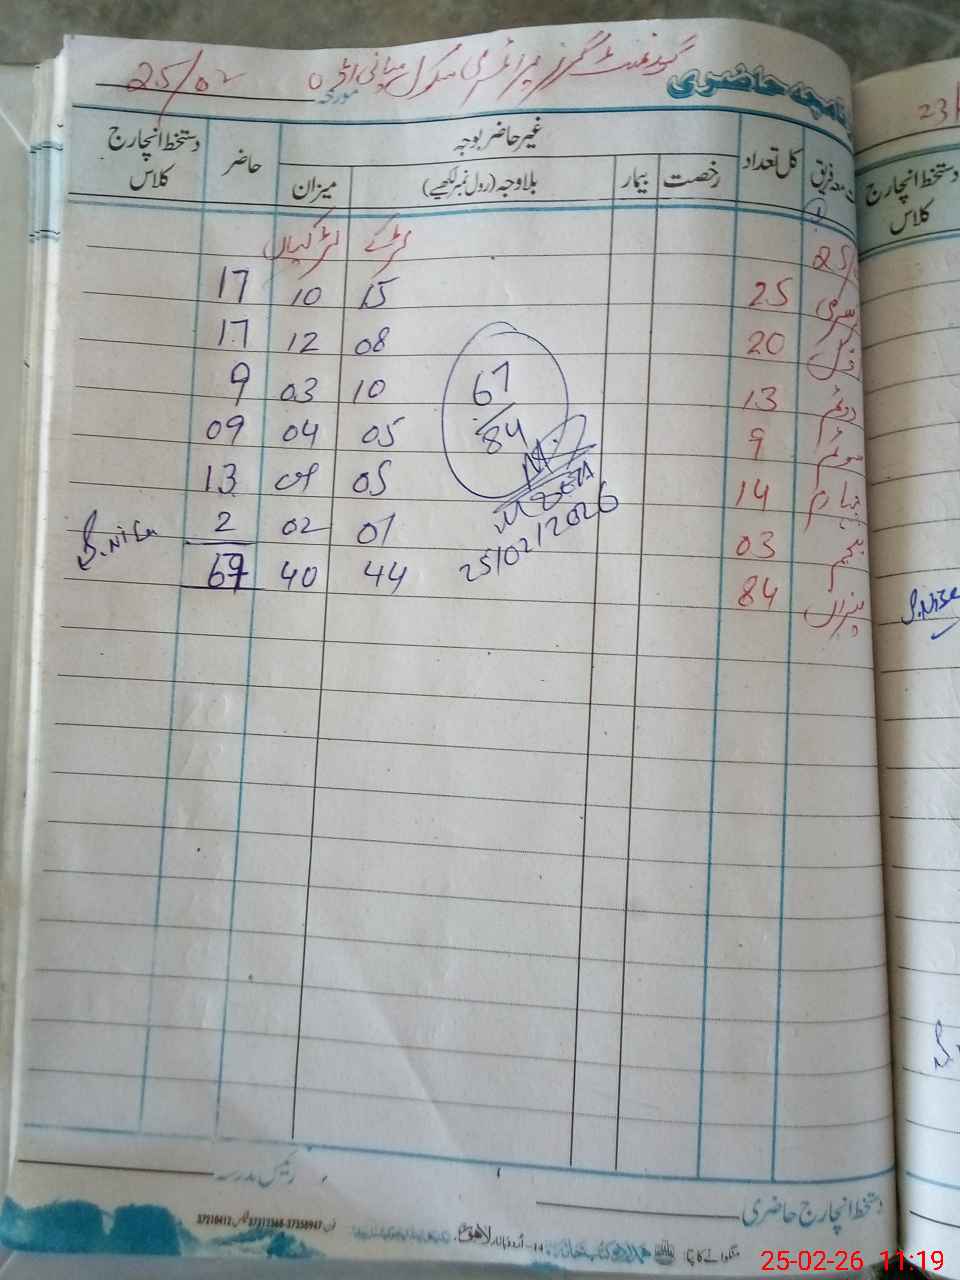 گورنمنٹ گرلز پرائمری سکول
حاضری
مورخہ 25/02
کل تعداد
غیر حاضر بوجہ
حاضر
دستخط انچارج کلاس
رخصت
بیمار
بلاوجہ (رول نمبر لکھیے)
میزان
لڑکے لڑکیاں
25 15 10 17
اول 20 08 12 17
دوئم 13 10 03 9
سوئم 9 05 04 09
چہارم 14 05 09 13
پنجم 03 01 02 2
میزان 84 44 40 67
67
84
25/02/2026
S.Nisa
23/
دستخط انچارج
کلاس
S.Nisa
رئیس مدرسہ
دستخط انچارج حاضری
منگوانے کا پتہ:
اردو بازار لاہور
فون 37311368-37350947 فیکس 37210412
25-02-26 11:19